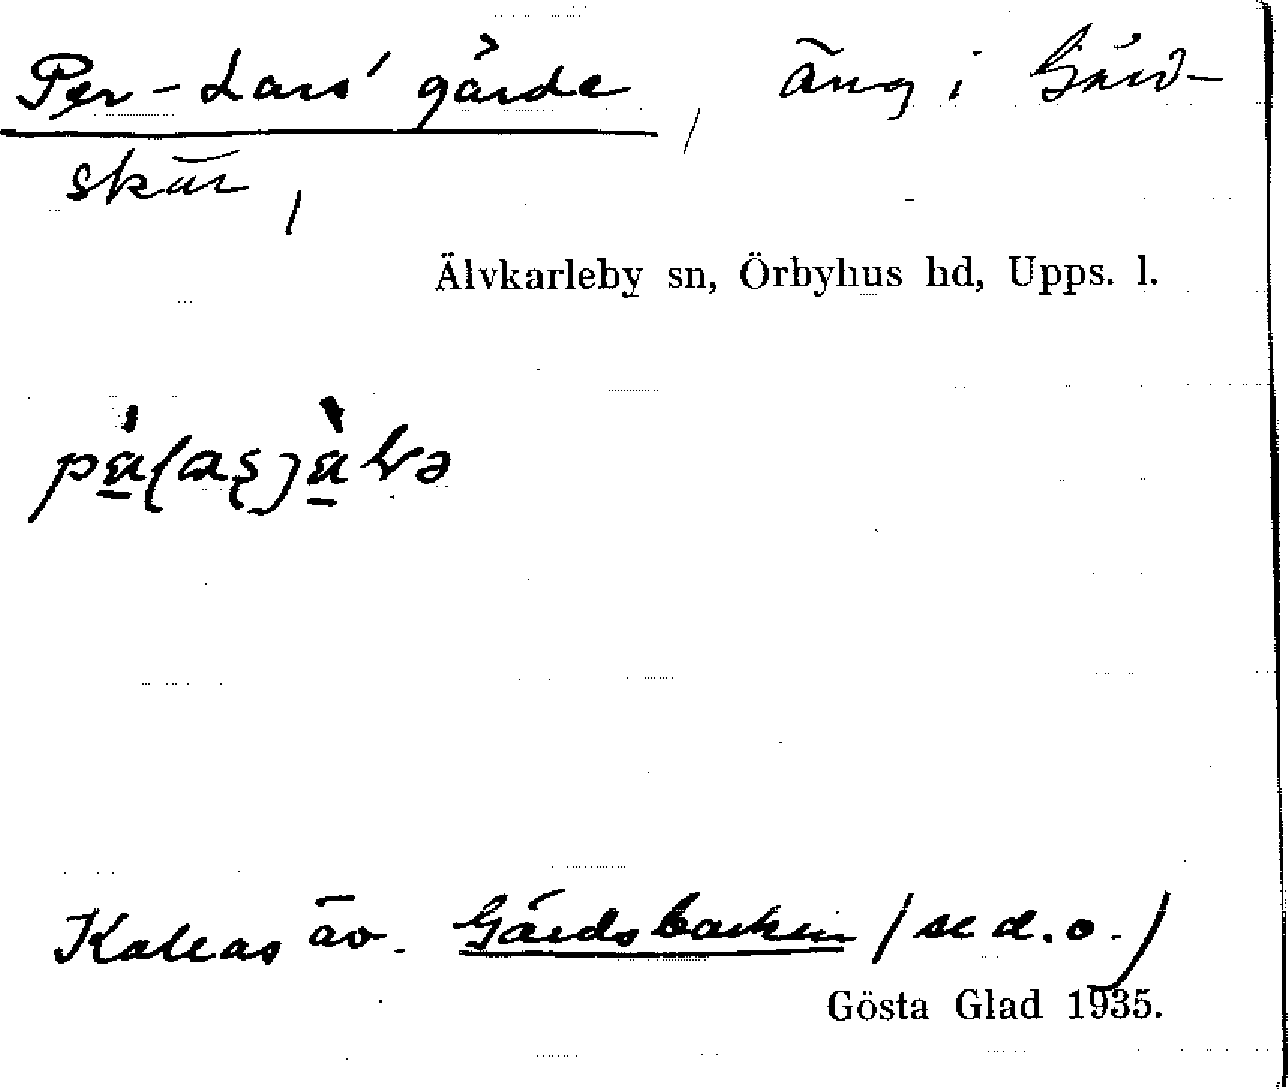 Per-Lars' gärde, äng i Gård-
skär,
Älvkarleby sn, Örbyhus hd, Upps. l.
Kallas äv. Gårdsbacken (se d.o.)
Gösta Glad 1935.